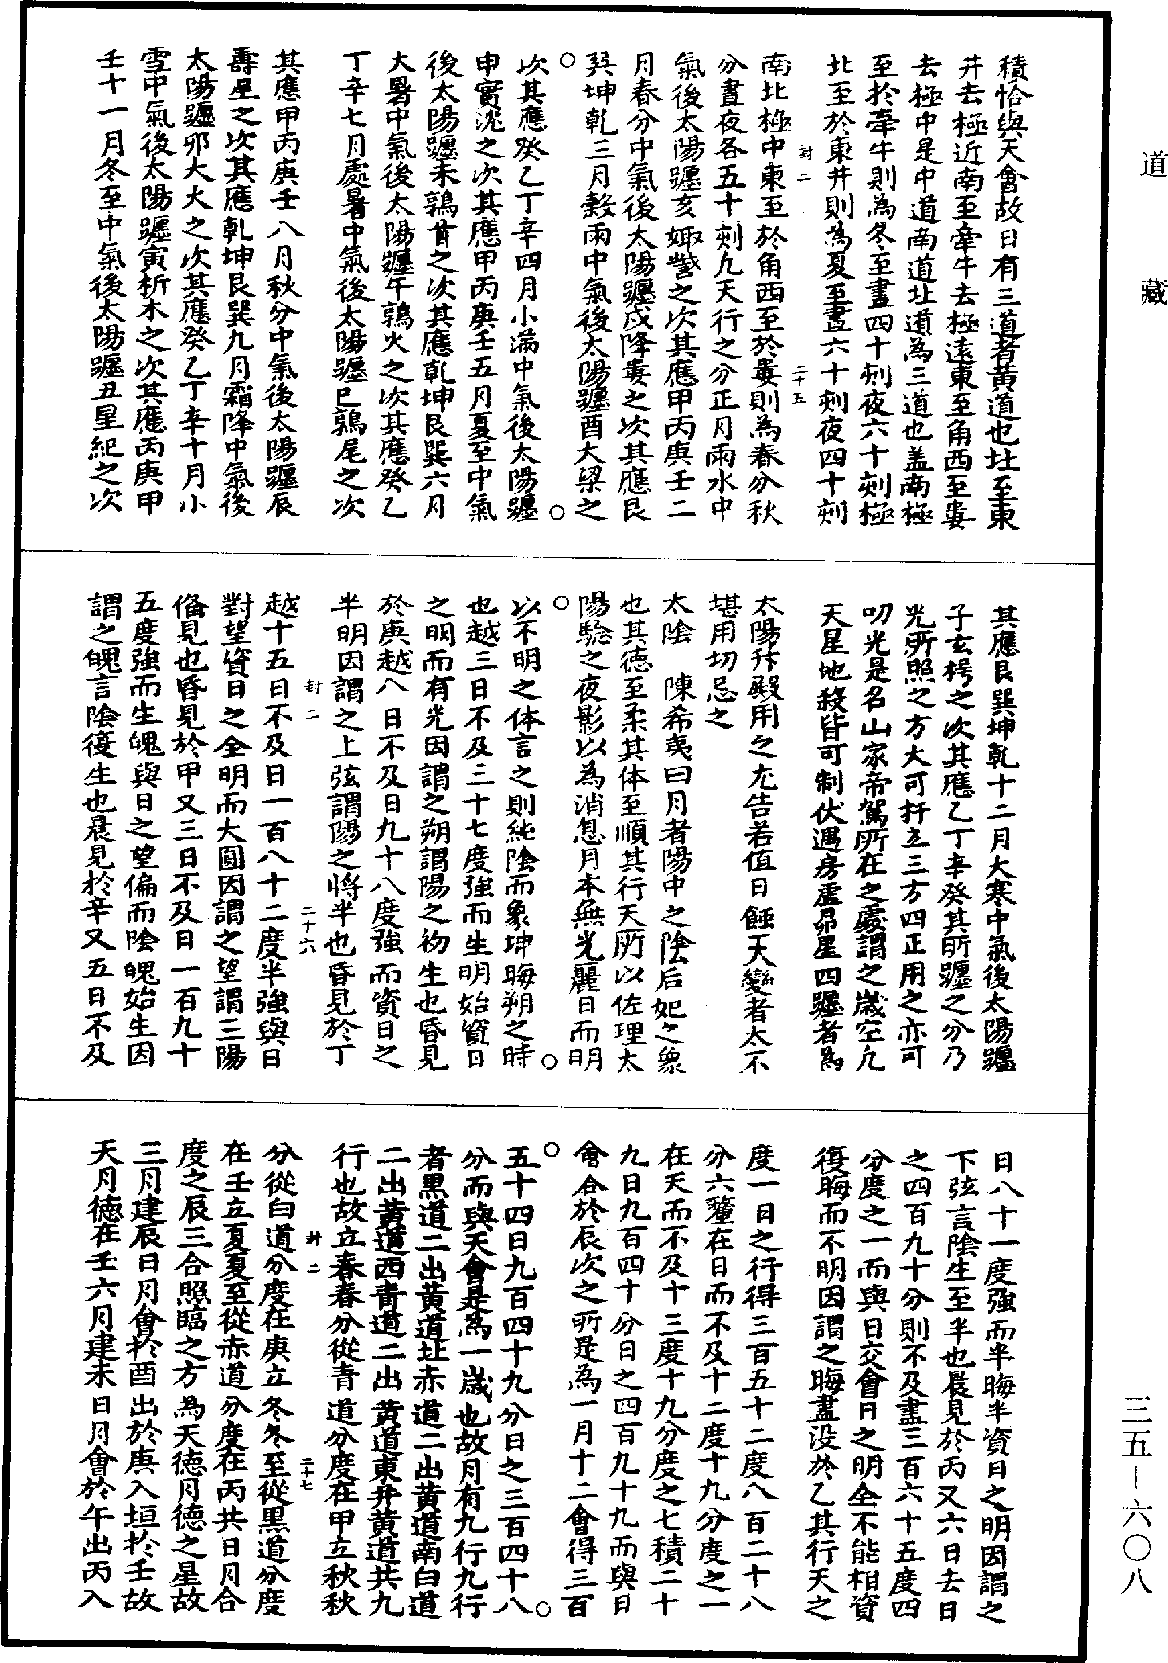 道藏
積恰與天會故日有三道者黃道也北至東
井去極近南至牽牛去極遠東至角西至婁
去極中是中道南道北道為三道也盖南極
至於牽牛則為冬至晝四十刻夜六十刻極
北至於東井則為夏至晝六十刻夜四十刻
封二 二十五
南北極中東至於角西至於婁則為春分秋
分晝夜各五十刻九天行之分正月雨水中
氣後太陽躔亥娵訾之次其應甲丙庚壬二
月春分中氣後太陽躔戌降婁之次其應艮
巽坤乾三月穀雨中氣後太陽躔酉大梁之
次其應癸乙丁辛四月小滿中氣後太陽躔
申實沈之次其應甲丙庚壬五月夏至中氣
後太陽躔未鶉首之次其應乾坤艮巽六月
大暑中氣後太陽躔午鶉火之次其應癸乙
丁辛七月處暑中氣後太陽躔巳鶉尾之次
其應甲丙庚壬八月秋分中氣後太陽躔辰
壽星之次其應乾坤艮巽九月霜降中氣後
太陽躔卯大火之次其應癸乙丁辛十月小
雪中氣後太陽躔寅析木之次其應丙庚甲
壬十一月冬至中氣後太陽躔丑星紀之次
其應艮巽坤乾十二月大寒中氣後太陽躔
子玄枵之次其應乙丁辛癸其所躔之分乃
光所照之方大可扦立三方四正用之亦可
叨光是名山家帝駕所在之處謂之歲空凡
天星地殺皆可制伏遇房虛昴星四躔者為
太陽升殿用之尤吉若值日蝕天變者太不
堪用切忌之
太陰 陳希夷曰月者陽中之陰后妃之象
也其德至柔其体至順其行天所以佐理太
陽驗之夜影以為消息月本無光麗日而明
以不明之体言之則純陰而象坤晦朔之時
也越三日不及三十七度強而生明始資日
之明而有光因謂之朔謂陽之初生也昏見
於庚越八日不及日九十八度強而資日之
半明因謂之上弦謂陽之將半也昏見於丁
封二 二十六
越十五日不及日一百八十二度半強與日
對望資日之全明而大圓因謂之望謂三陽
俻見也昏見於甲又三日不及日一百九十
五度強而生魄與日之望偏而陰魄始生因
謂之魄言陰復生也晨見於辛又五日不及
日八十一度強而半晦半資日之明因謂之
下弦言陰生至半也晨見於丙又六日去日
之四百九十分則不及盡三百六十五度四
分度之一而與日交會日之明全不能相資
復晦而不明因謂之晦盡没於乙其行天之
度一日之行得三百五十二度八百二十八
分六釐在日而不及十二度十九分度之一
在天而不及十三度十九分度之七積二十
九日九百四十分日之四百九十九而與日
會合於辰次之所是為一月十二會得三百
五十四日九百四十九分日之三百四十八
分而與天會是為一歲也故月有九行九行
者黑道二出黃道北赤道二出黃道南白道
二出黃道西青道二出黃道東并黃道共九
行也故立春春分從青道分度在甲立秋秋
封二 二十七
分從白道分度在庚立冬冬至從黑道分度
在壬立夏夏至從赤道分度在丙共日月合
度之辰三合照臨之方為天德月德之星故
三月建辰日月會於酉出於庚入垣於壬故
天月德在壬六月建未日月會於午出丙入
三五-六〇八